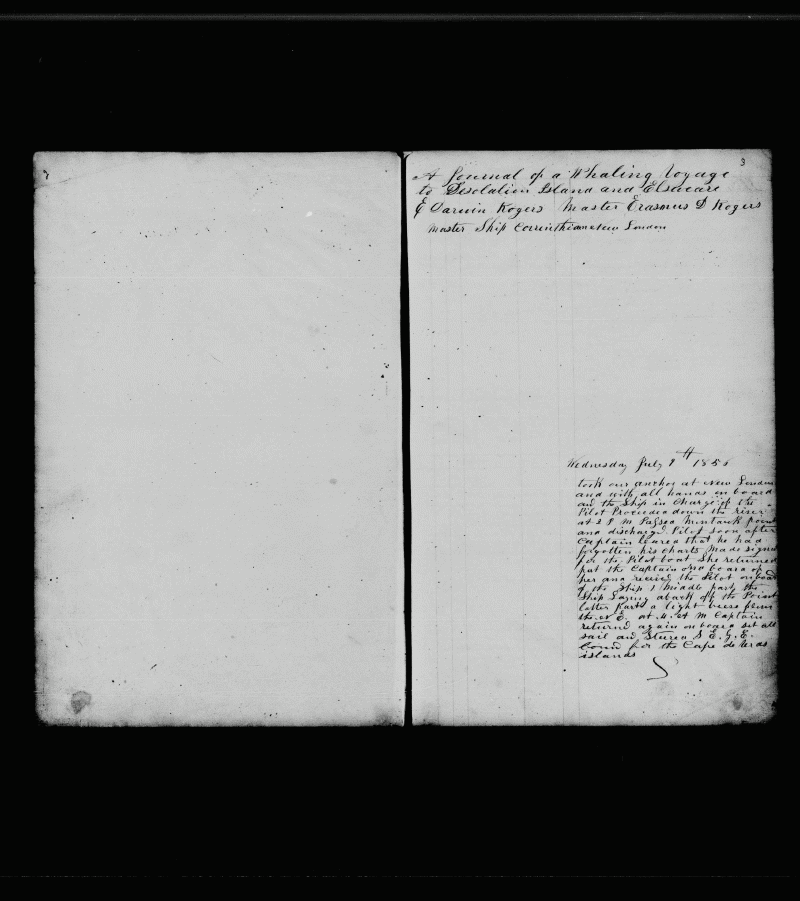 3
A Journal of a Whaling Voyage
to Desolation Island and Elsweare
E Darwin Rogers Master Erasmus D Rogers
Master Ship Corrinthian New London
Wednesday July 9th 1856
took our anchor at New London
and with all hands on board
and the Ship in Charge of the
Pilot Proceeded down the river
at 2 P M Passed Muntauk point
and discharged Pilot soon after
Captain learned that he had
forgotten his charts Made signal
for the Pilot boat She returned
put the Captain on board of
her and received the Pilot onboard
of the Ship Middle part the
Ship Laying aback off the Point
latter Part a light brees from
the N E. at 11. A M Captain
returned again on board set all
sail and Steered S E.
bound for the Cape de Verds
islands